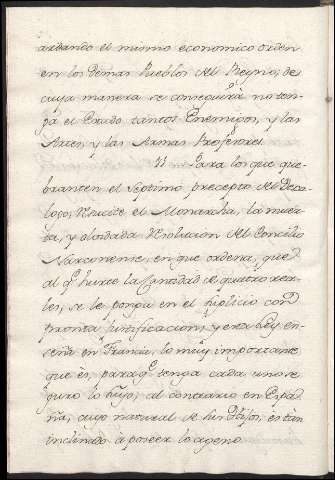 ardando el mismo economico orden
en los demas Pueblos del Reyno; de
cuya manera se conseguirà no ten-
ga el Estado tantos Enemigos, y las
Artes, y las Armas Profesores.
11 Para los que que-
branten el septimo precepto del Deca-
logo, el Monarcha, la
ta, y olvidada Resolucion del Concilio
Narconense, en que ordena, que
al qe hurte la Cantidad de quatro rea-
les, se le ponga en el suplicio con
pronta justificacion, y esta Ley en-
seña en Francia lo muy importante
que és, para qe tenga cada uno se-
guro lo suyo; al contrario en Espa-
ña, cuyo natural de sus Hijos, están
inclinado à poseer lo ageno